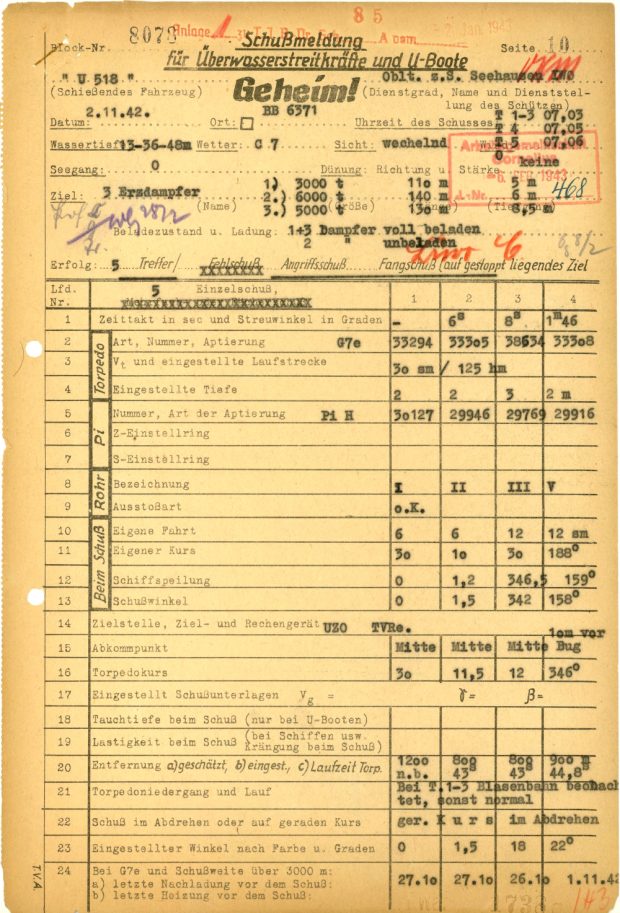 8 5
Block-Nr. 8073 Anlage 1 Jan. 194
Schußmeldung Seite 10
für Überwasserstreitkräfte und U-Boote
" U 518 " Geheim! Oblt. z.S. Seehausen IWO
(Schießendes Fahrzeug) (Dienstgrad, Name und Dienststel-
lung des Schützen)
Datum: 2.11.42. Ort: BB 6371 Uhrzeit des Schusses T 1-3 07,03
T 4 07,05
T 5 07,06
Wassertiefe 13-36-48m Wetter: C 7 Sicht: wechselnd
Seegang: 0 Dünung: Richtung u. Stärke keine
FEB. 1943
J.-Nr. 468
Ziel: 3 Erzdampfer 1.) 3000 t 110 m 5 m
2.) 6000 t 140 m 6 m
3.) 5000 t 130 m 8,5 m
(Name) (Größe)
Beladezustand u. Ladung: 1+3 Dampfer voll beladen
2 " unbeladen
Erfolg: 5 Treffer/ Fehlschuß Angriffsschuß Fangschuß (auf gestoppt liegendes Ziel
Lfd. Nr. 5 Einzelschuß, 1 2 3 4
1 Zeittakt in sec und Streuwinkel in Graden - 6s 8s 1m46
Torpedo
2 Art, Nummer, Aptierung G7e 33294 33305 38634 33308
3 Vt und eingestellte Laufstrecke 30 sm / 125 hm
4 Eingestellte Tiefe 2 2 3 2 m
Pi
5 Nummer, Art der Aptierung Pi H 30127 29946 29769 29916
6 Z-Einstellring
7 S-Einstellring
Rohr
8 Bezeichnung I II III V
9 Ausstoßart o.K.
Beim Schuß
10 Eigene Fahrt 6 6 12 12 sm
11 Eigener Kurs 30 10 30 188°
12 Schiffspeilung 0 1,2 346,5 159°
13 Schußwinkel 0 1,5 342 158°
14 Zielstelle, Ziel- und Rechengerät UZO TVRe.
10m vor
15 Abkommpunkt Mitte Mitte Mitte Bug
16 Torpedokurs 30 11,5 12 346°
17 Eingestellt Schußunterlagen Vg = γ= β=
18 Tauchtiefe beim Schuß (nur bei U-Booten)
19 Lastigkeit beim Schuß (bei Schiffen usw.
Krängung beim Schuß)
20 Entfernung a) geschätzt, b) eingest., c) Laufzeit Torp. 1200 800 800 900 m
n.b. 43s 43s 44,8s
21 Torpedoniedergang und Lauf Bei T.1-3 Blasenbahn beobach
tet, sonst normal
22 Schuß im Abdrehen oder auf geraden Kurs ger. K u r s im Abdrehen
23 Eingestellter Winkel nach Farbe u. Graden 0 1,5 18 22°
24 Bei G7e und Schußweite über 3000 m:
a) letzte Nachladung vor dem Schuß: 27.10 27.10 26.10 1.11.42
b) letzte Heizung vor dem Schuß:
143
T.V.A